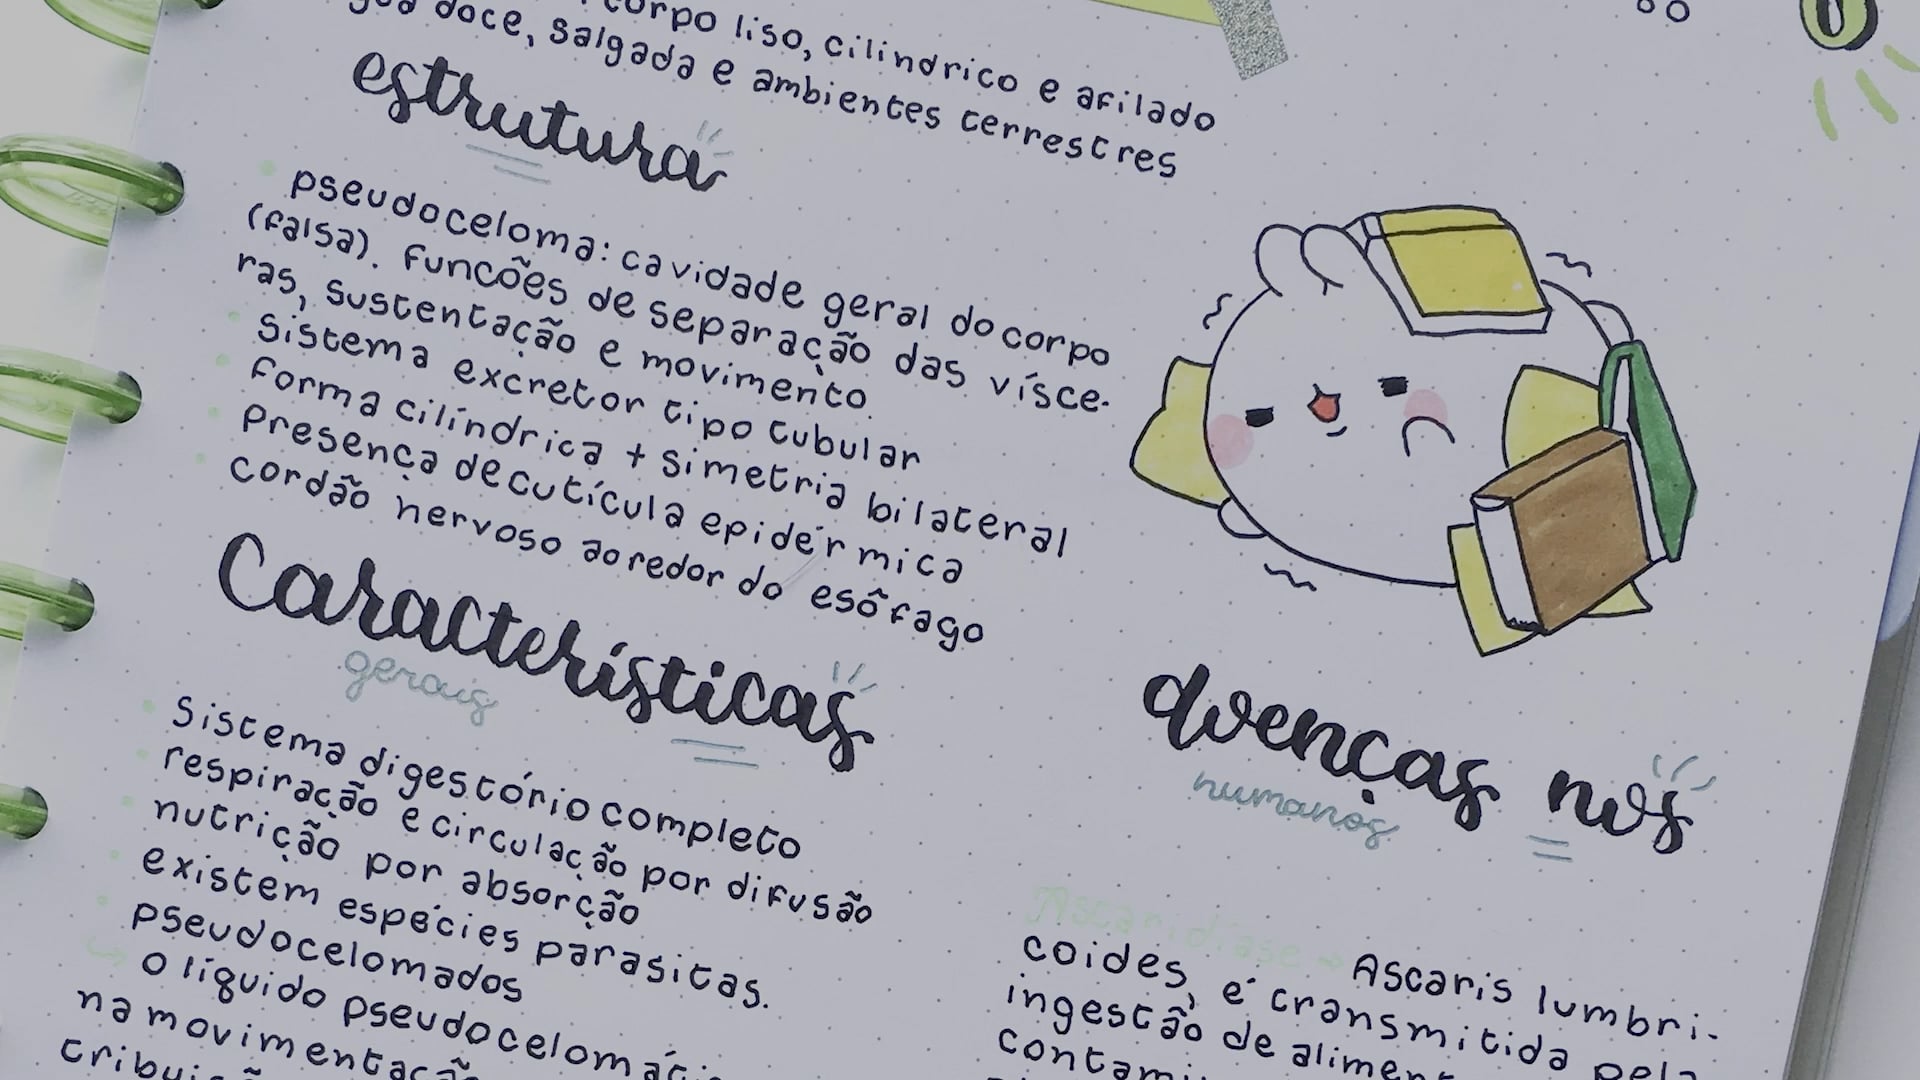 corpo liso, cilíndrico e afilado
doce, salgada e ambientes terrestres
estrutura
pseudoceloma: cavidade geral do corpo
(falsa). funcões de separação das vísce-
ras, sustentação e movimento.
sistema excretor tipo tubular
forma cilíndrica + simetria bilateral
presença de cutícula epidérmica
cordão nervoso ao redor do esôfago
Características
gerais
Sistema digestório completo
respiração e circulação por difusão
nutrição por absorção
existem espécies parasitas.
pseudocelomados
o líquido
na
doenças nos
humanos
Ascaridíase → Ascaris lumbri-
coides, é transmitida pela
ingestão de